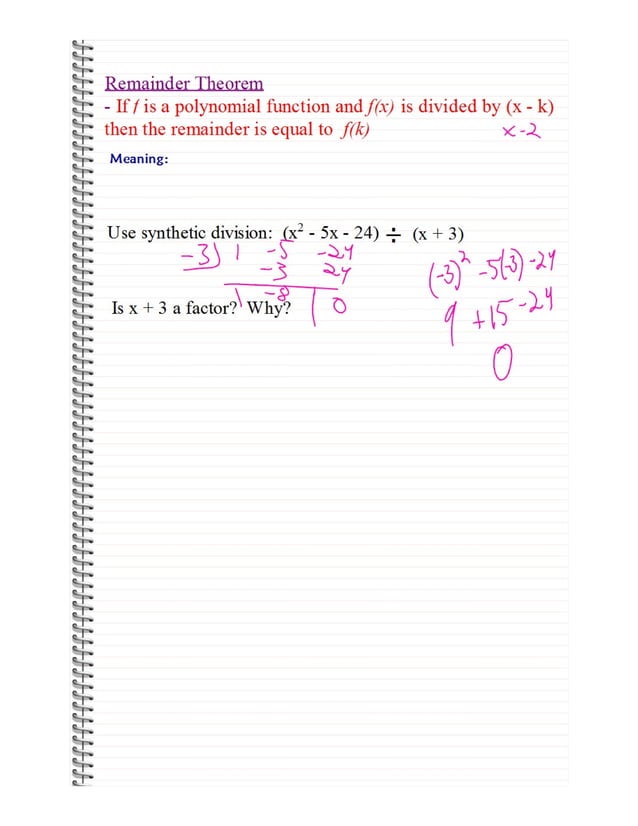 Remainder Theorem
- If f is a polynomial function and f(x) is divided by (x - k)
then the remainder is equal to f(k)
x-2
Meaning:
Use synthetic division: (x² - 5x - 24) ÷ (x + 3)
-3) 1 -5 -24
-3 24
1 -8 | 0
(-3)² -5(-3) -24
9 +15 -24
0
Is x + 3 a factor? Why?